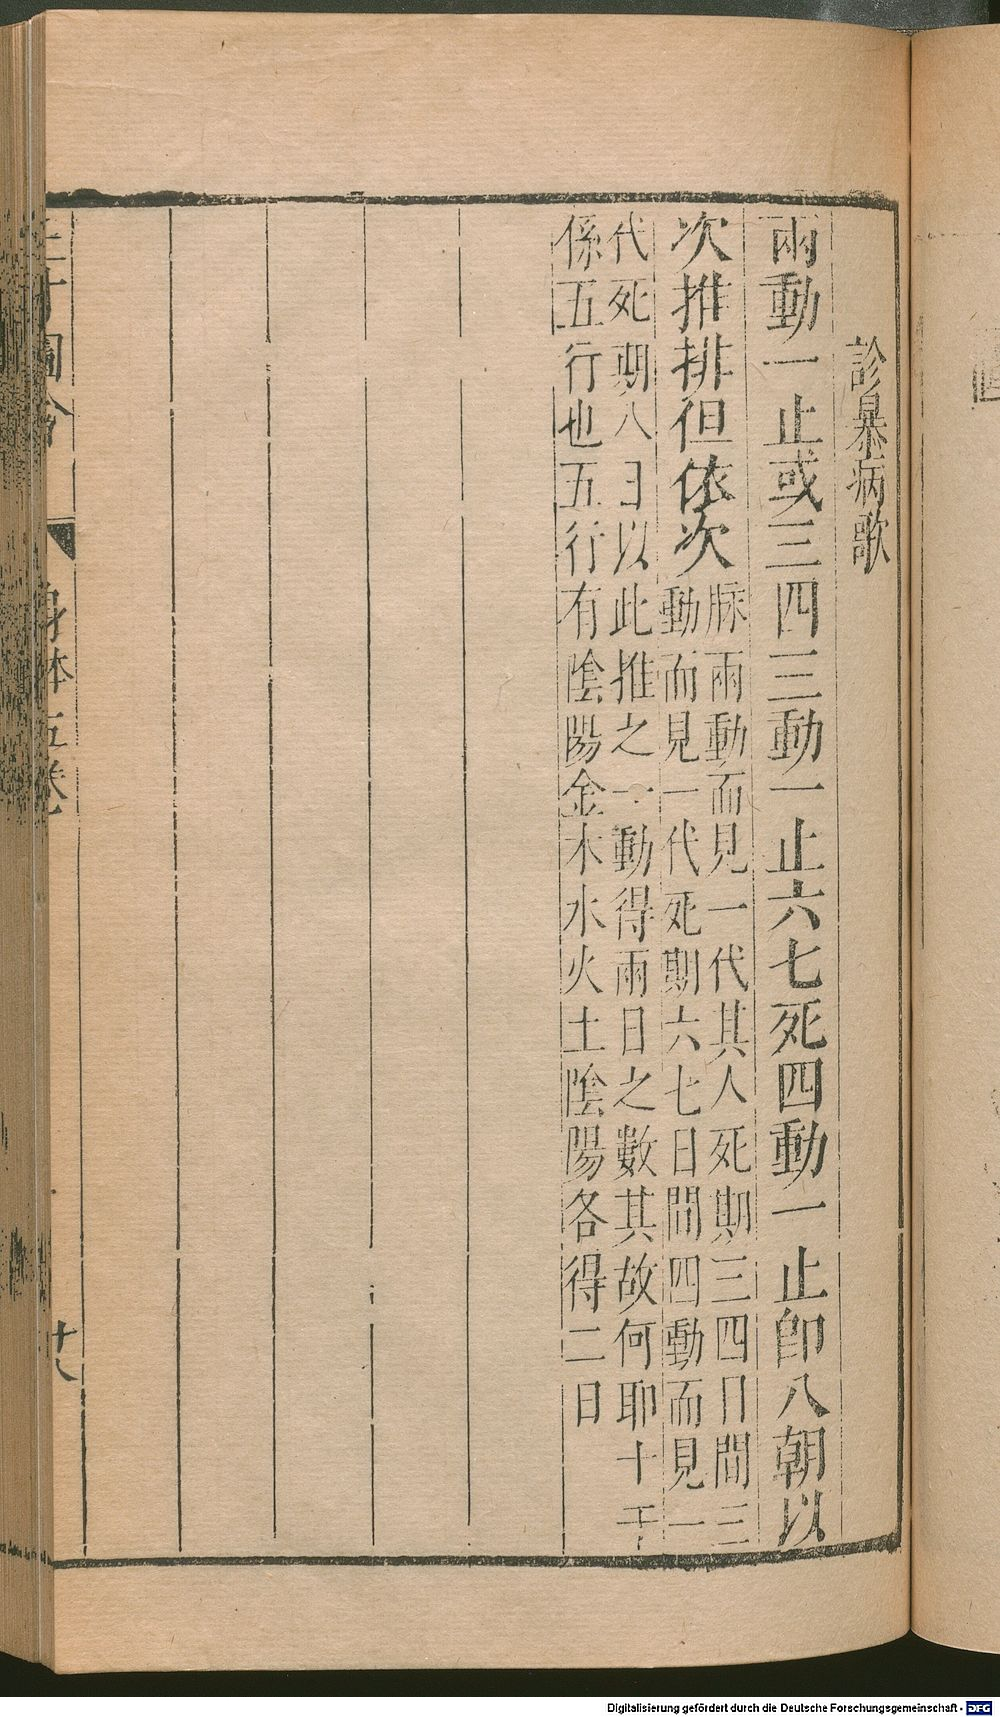 診暴病歌
兩動一止或三四三動一止六七死四動一止即八朝以
次推排但依次
脉兩動而見一代其人死期三四日間三
動而見一代死期六七日間四動而見一
代死期八日以此推之一動得兩日之數其故何耶十干
係五行也五行有陰陽金木水火土陰陽各得二日
三才圖會
身體五卷
十八
Digitalisierung gefördert durch die Deutsche Forschungsgemeinschaft - DFG